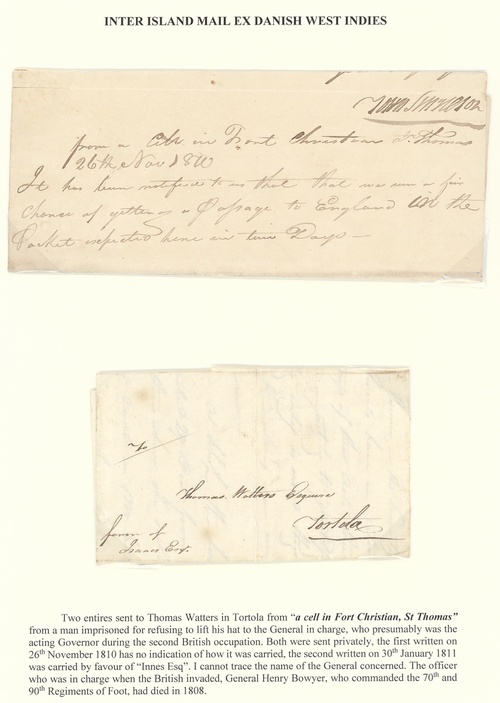 INTER ISLAND MAIL EX DANISH WEST INDIES
from a Cell in Fort Christian St. Thomas
26th Nov. 1810
It has been notified to us that that we run a fair
chance of getting a Passage to England in the
Packet expected here in two Days —
To
Thomas Watters Esquire
Tortola
favor of
Esq.
Two entires sent to Thomas Watters in Tortola from “a cell in Fort Christian, St Thomas”
from a man imprisoned for refusing to lift his hat to the General in charge, who presumably was the
acting Governor during the second British occupation. Both were sent privately, the first written on
26th November 1810 has no indication of how it was carried, the second written on 30th January 1811
was carried by favour of “Innes Esq”. I cannot trace the name of the General concerned. The officer
who was in charge when the British invaded, General Henry Bowyer, who commanded the 70th and
90th Regiments of Foot, had died in 1808.